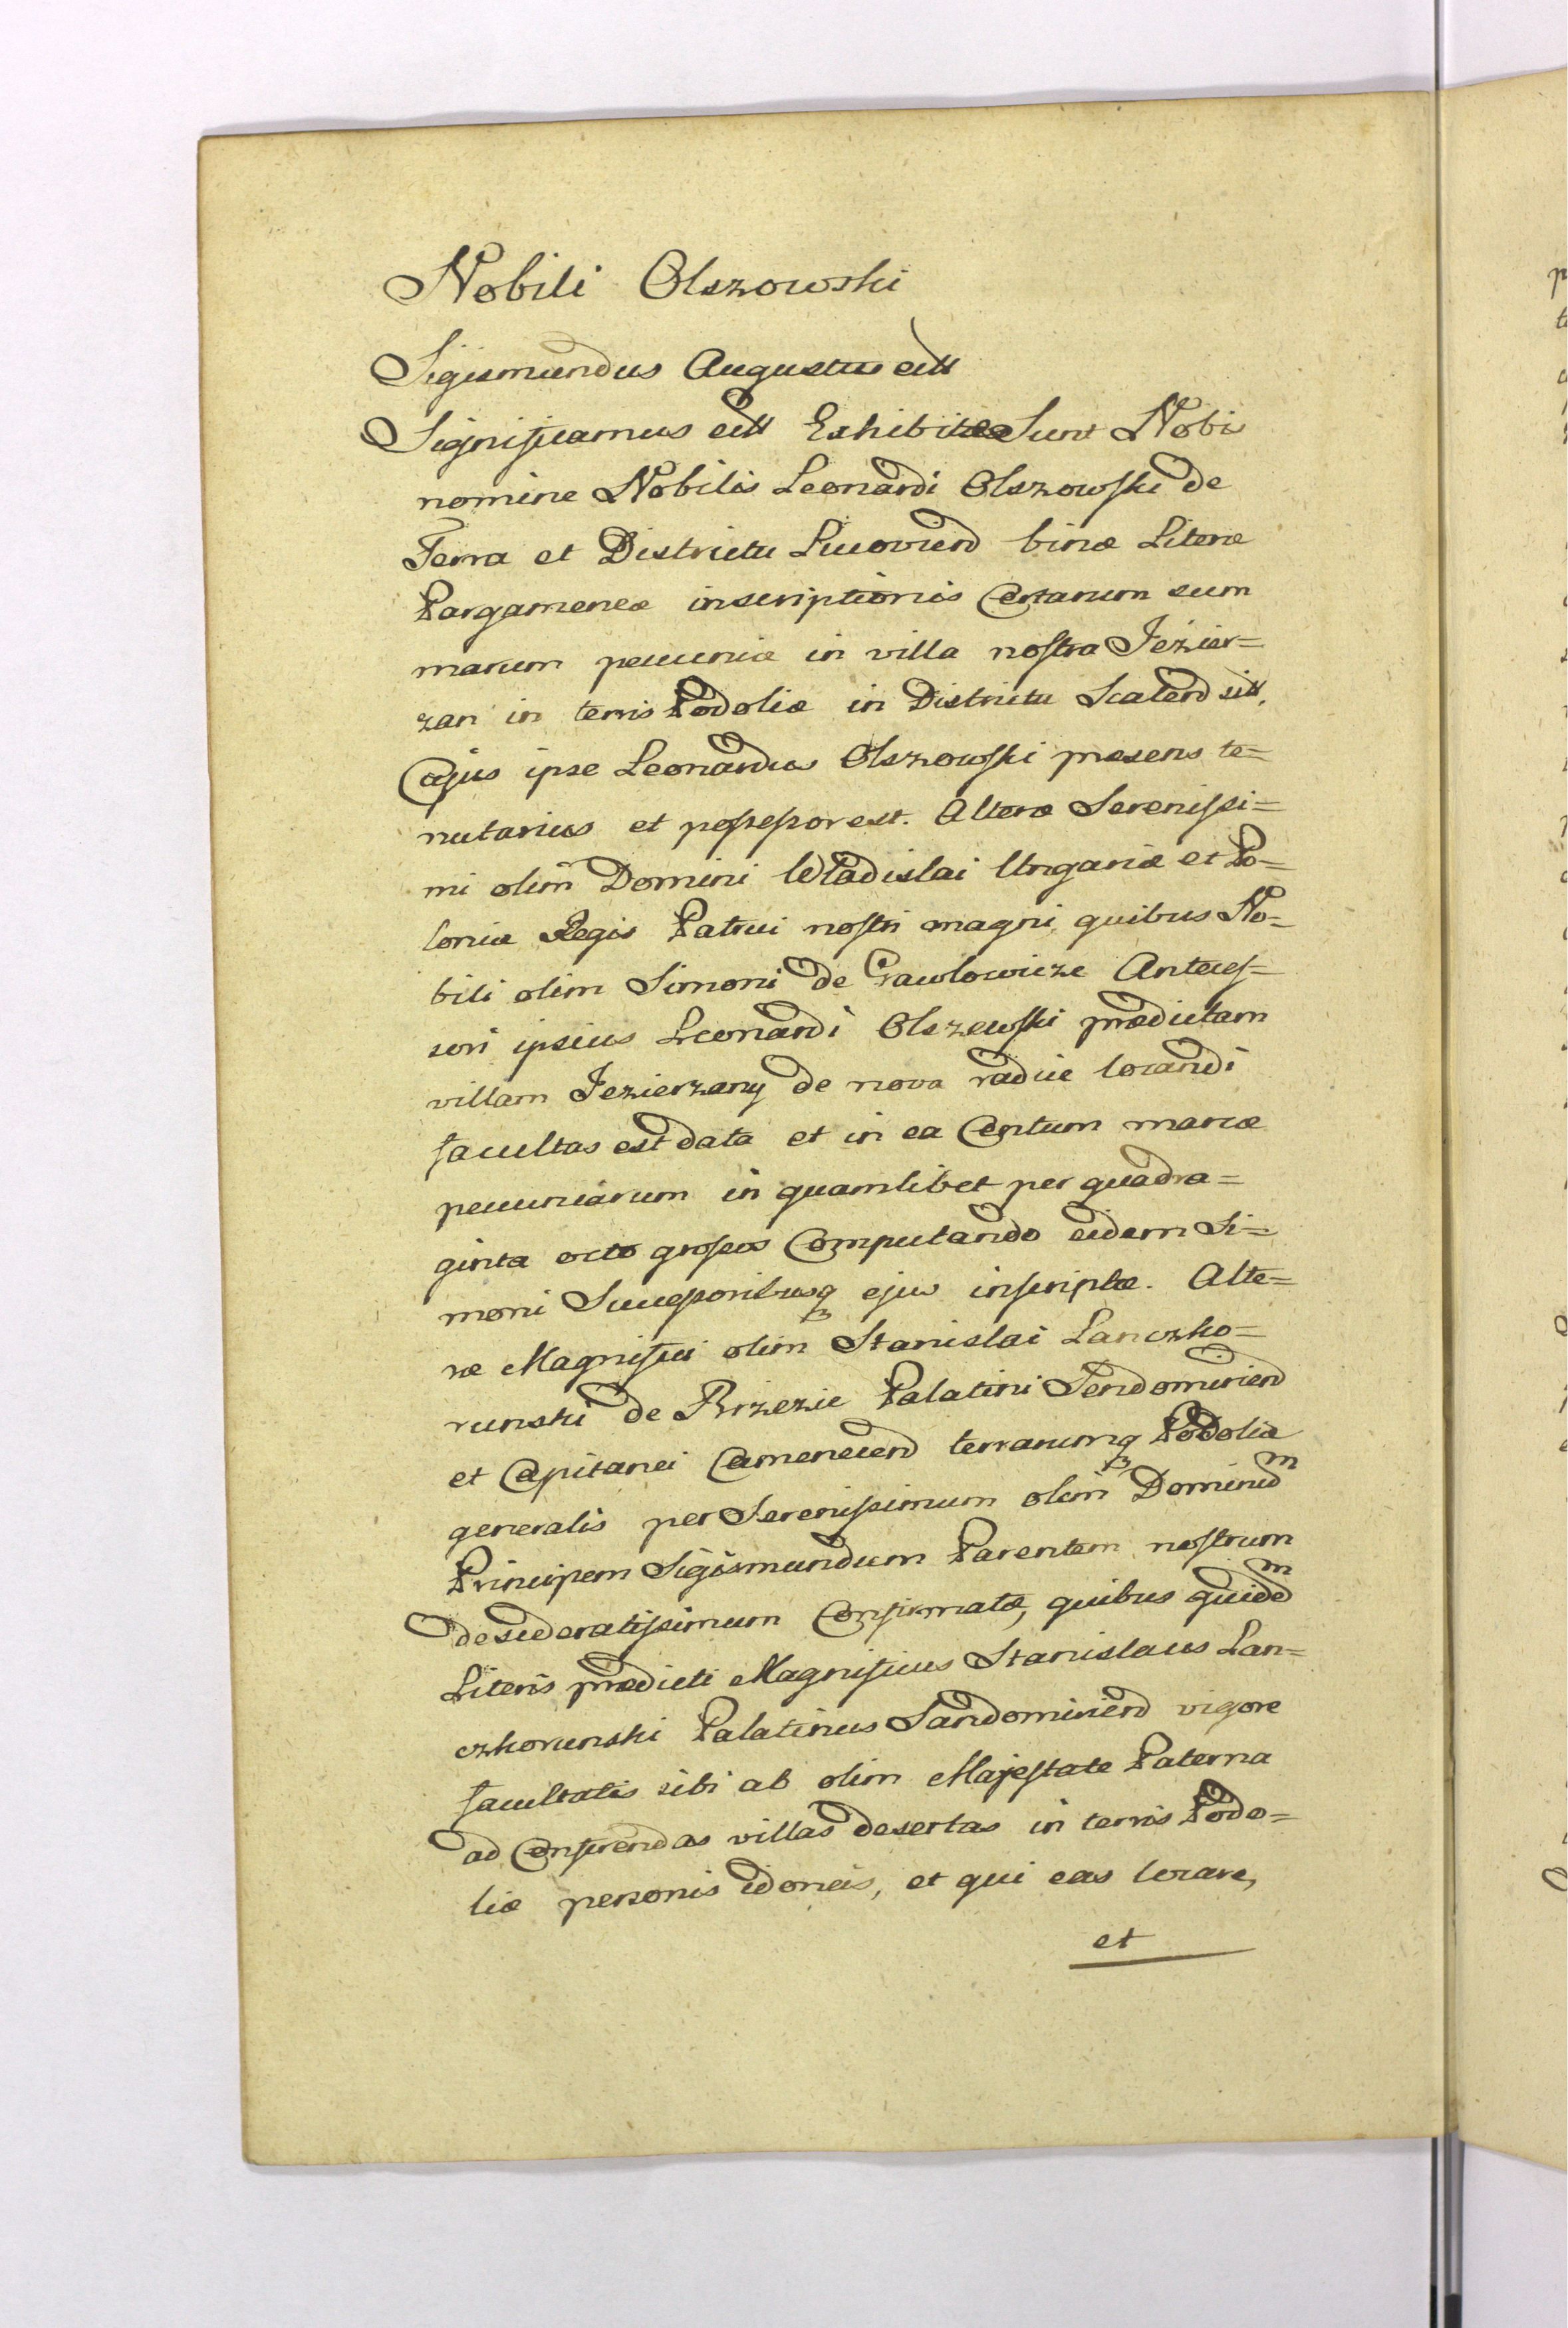 Nobili Olszowski
Sigismundus Augustus ett
Significamus ett Exhibitæ Sunt Nobis
nomine Nobilis Leonardi Olszowski de
Terra et Districtu Lucoviend binæ Literæ
Pargameneæ inscriptionis Certarum sum
marum pecuniæ in villa nostra Jezier=
zan in terris Podoliæ in Districtu Scalend sitt,
Cujus ipse Leonardus Olszowski presens te=
nutarius et possessor est. Alteræ Serenissi=
mi olim Domini Wladislai Ungariæ et Po=
loniæ Regis Patrui nostri magni, quibus No=
bili olim Simoni de Crawlowicze Anteces=
sori ipsius Leonardi Olszewski prædictam
villam Jezierzany de nova radice locandi
facultas est data et in ea Centum marcæ
pecuniarum in quamlibet per quadra=
ginta octo grossos Computando eidem Si=
moni Successoribusq ejus inscriptæ. Alte=
ræ Magnifici olim Stanislai Lanczko=
runski de Brzezie Palatini Sendomiriend
et Capitanei Camenecend terrarumq Podoliæ
generalis per Serenissimum olim Dominum
Principem Sigismundum Parentem nostrum
desideratissimum Confirmatæ, quibus quidem
Literis prædicti Magnificus Stanislaus Lan=
czkorunski Palatinus Sandomiriend vigore
facultatis sibi ab olim Majestate Paterna
ad Conferendas villas desertas in terris Podo=
liæ personis idoneis, et qui eas locare,
et